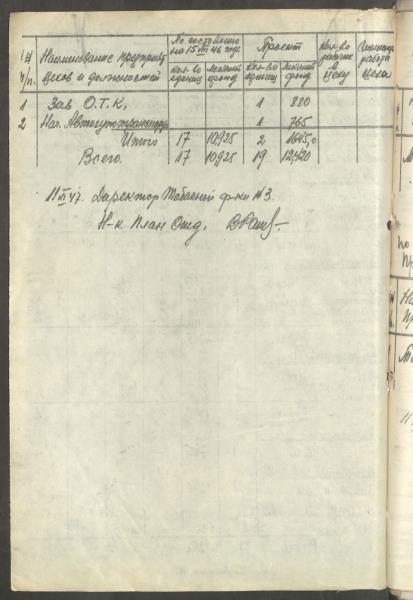 № п/п. Наименование предприят цехов и должностей По состоянию на 15 VIII 46 года Проект Кол-во рабочих в цеху работ цеха
Кол-во единиц Месячный фонд Кол-во единиц Месячный фонд
1 Зав О.Т.К. 1 880
2 Нач. 1 765
Итого 17 10,925 2 1645,0
Всего. 17 10,925 19 12,420
11 47. Директор Табачной ф-ки №3.
Н-к План Отд.